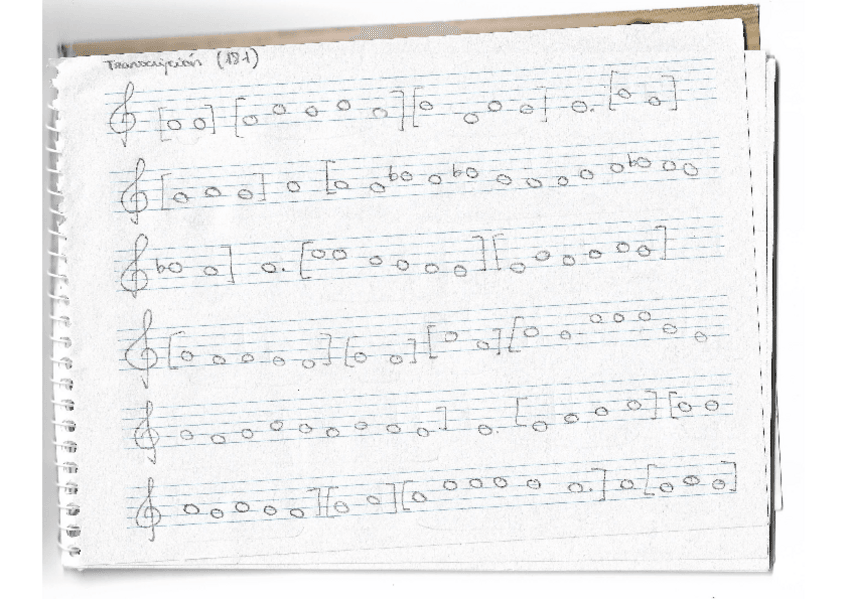 Transcripción (181)